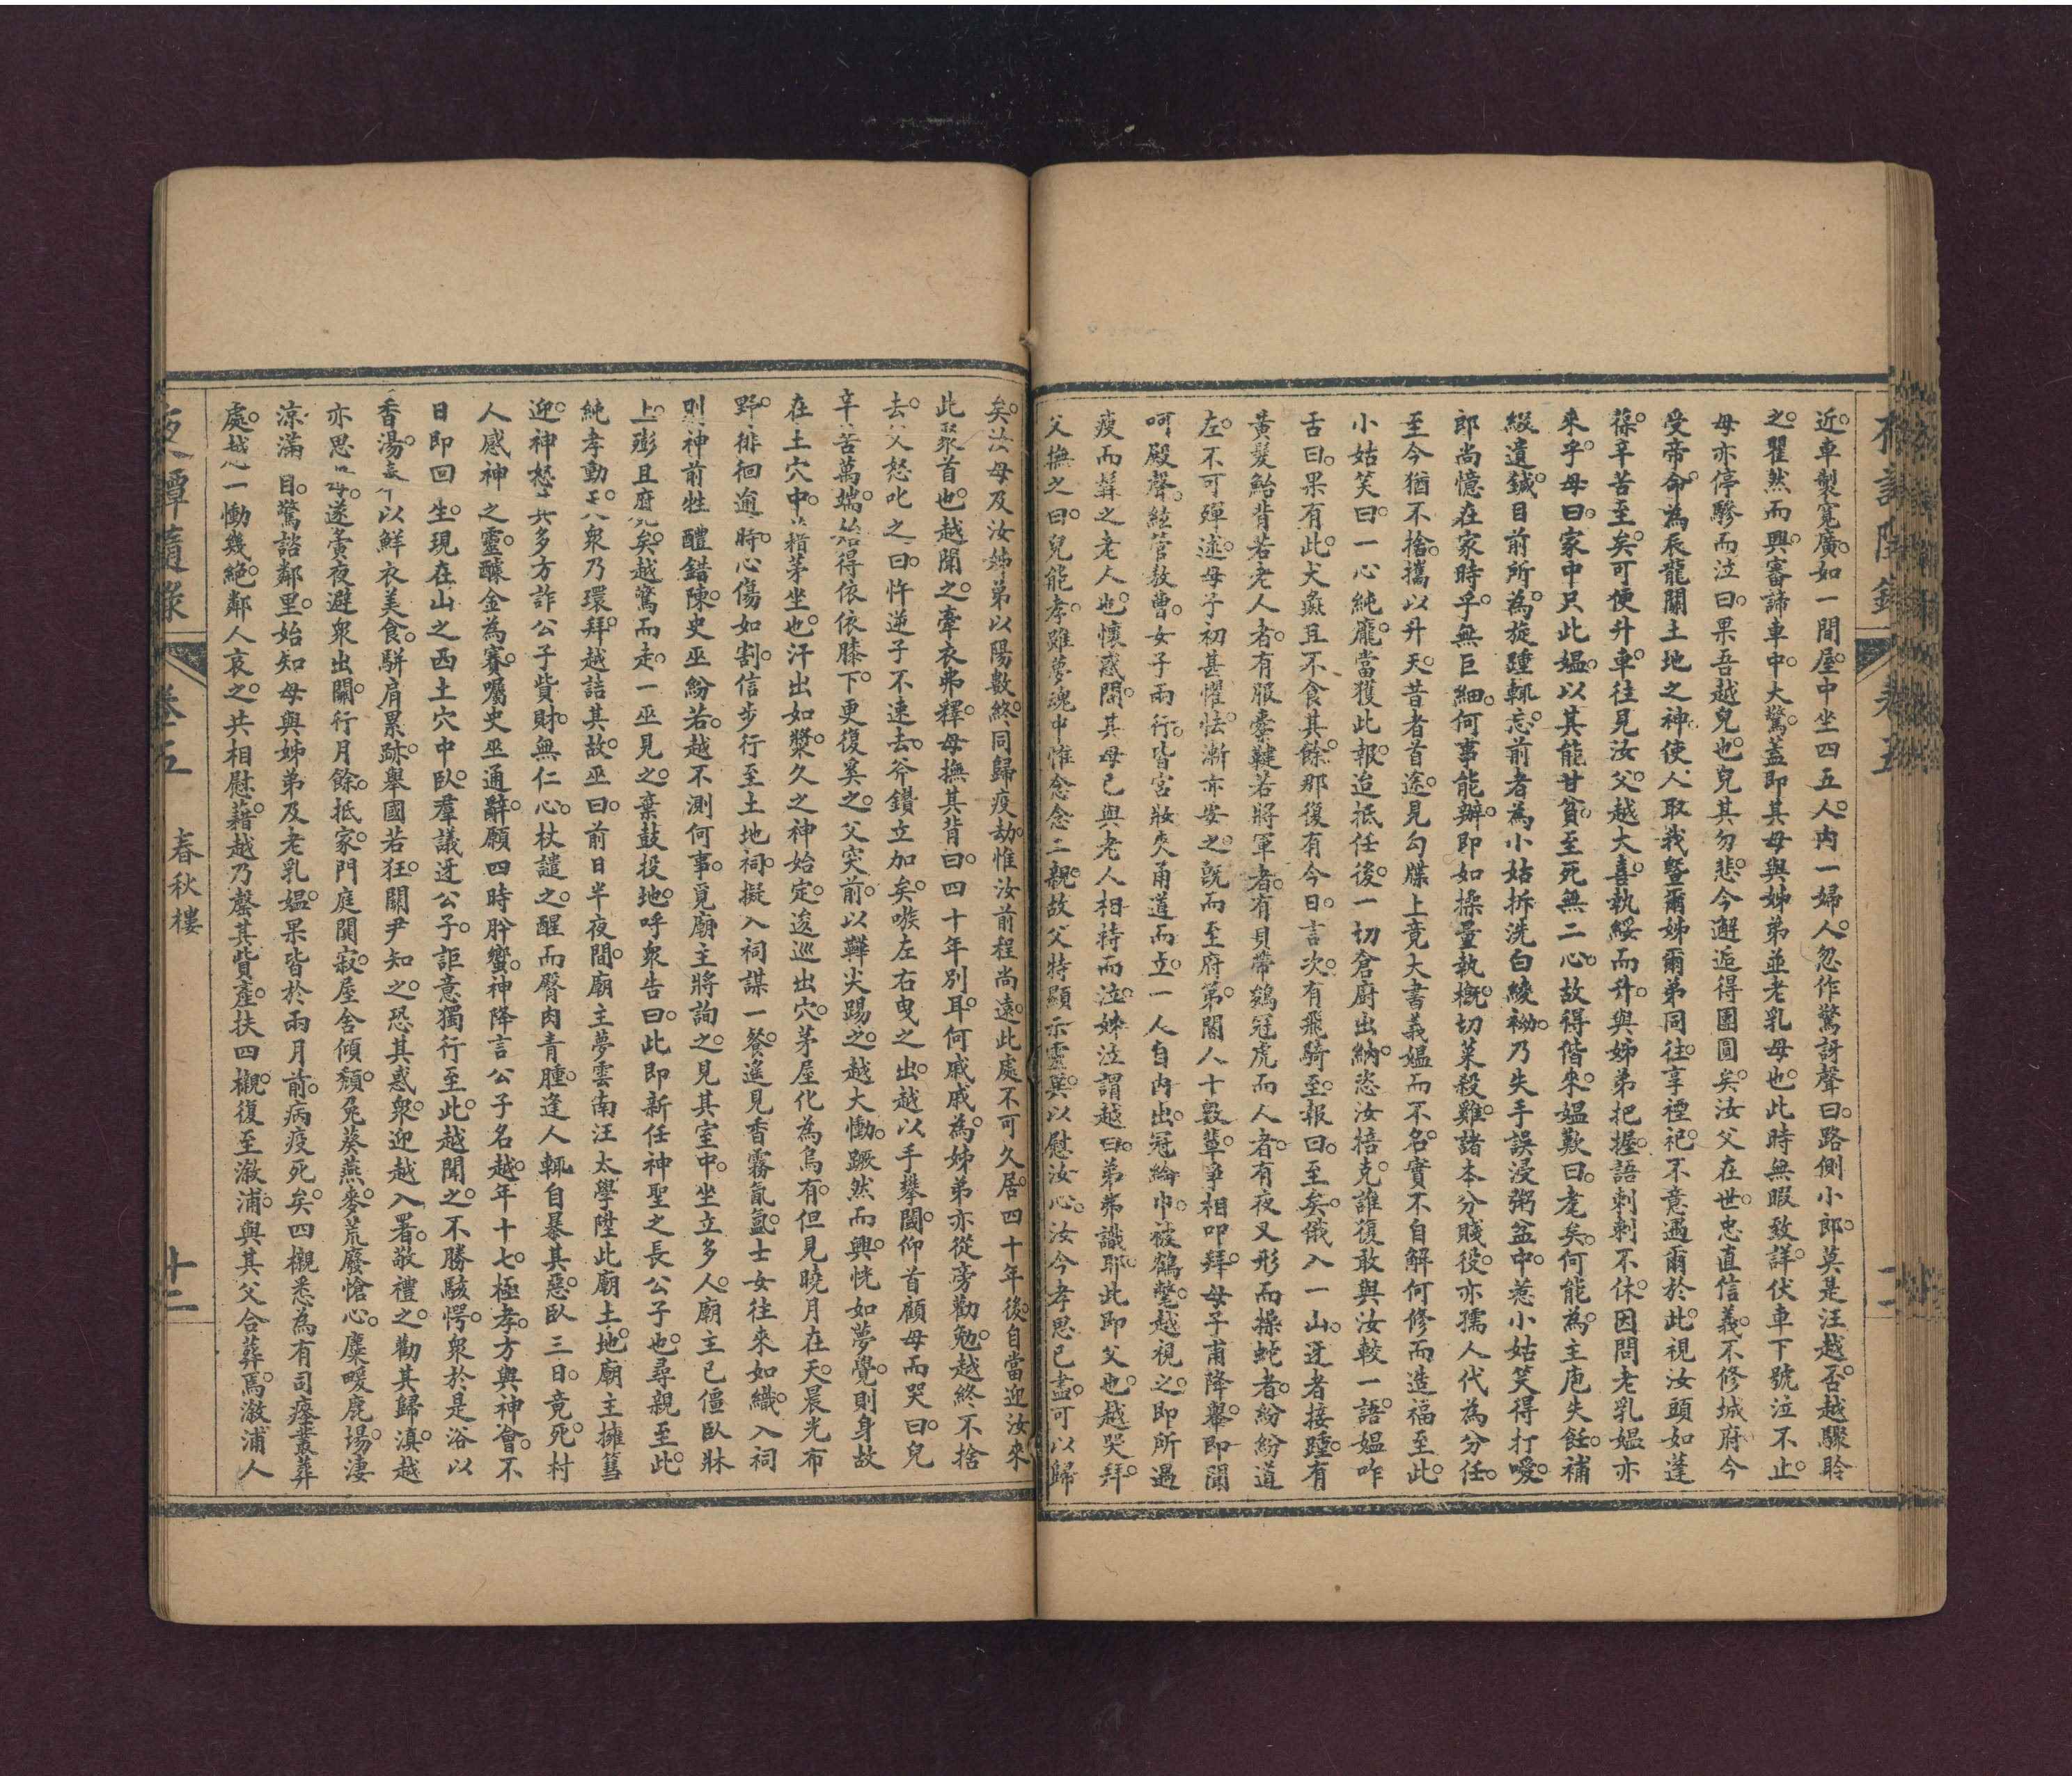 近車製寬廣如一間屋中坐四五人內一婦人忽作驚訝聲曰路側小郎莫是汪越否越驟聆
之瞿然而興審諦車中大驚蓋即其母與姊弟並老乳母也此時無暇致詳伏車下號泣不止
母亦停驂而泣曰果吾越兒也兒其勿悲今邂逅得團圓矣汝父在世忠直信義不修城府今
受帝命為辰龍關土地之神使人取我暨爾姊爾弟同往享禋祀不意遇爾於此視汝頭如蓬
葆辛苦至矣可便升車往見汝父越大喜執綏而升與姊弟把握語刺刺不休因問老乳媼亦
來乎母曰家中只此媼以其能甘貧至死無二心故得偕來媼歎曰耄矣何能為主庖失飪補
綴遺鍼目前所為旋踵輒忘前者為小姑拆洗白綾襪乃失手誤浸粥盆中惹小姑笑得打噯
郎尚憶在家時乎無巨細何事能辦即如操量執概切菜殺雞諸本分賤役亦孺人代為分任
至今猶不捨攜以升天昔者首途見勾牒上竟大書義媼而不名實不自解何修而造福至此
小姑笑曰一心純龐當獲此報迨抵任後一切倉廚出納恣汝掊克誰復敢與汝較一語媼咋
舌曰果有此犬彘且不食其餘那復有今日言次有飛騎至報曰至矣俄入一山迓者接踵有
黃髮鮐背若老人者有服櫜鞬若將軍者有貝帶鷄冠虎而人者有夜叉形而操蛇者紛紛道
左不可殫述母子初甚懼怯漸亦安之既而至府第閽人十數輩爭相叩拜母子甫降輿即聞
呵殿聲絃管敖曹女子兩行皆宮妝夾甬道而立一人自內出冠綸巾被鶴氅越視之即所遇
瘦而髯之老人也懷惑問其母已與老人相持而泣姊泣謂越曰弟弗識耶此即父也越哭拜
父撫之曰兒能孝雖夢魂中惟念念二親故父特顯示靈異以慰汝心汝今孝思已盡可以歸
夜譚隨錄 卷五
矣汝母及汝姊弟以陽數終同歸疫劫惟汝前程尚遠此處不可久居四十年後自當迎汝來
此聚首也越聞之牽衣弗釋母撫其背曰四十年別耳何戚戚為姊弟亦從旁勸勉越終不捨
去父怒叱之曰忤逆子不速去斧鑕立加矣嗾左右曳之出越以手攀閾仰首顧母而哭曰兒
辛苦萬端始得依依膝下更復奚之父突前以鞾尖踢之越大慟蹶然而興恍如夢覺則身故
在土穴中藉茅坐也汗出如漿久之神始定逡巡出穴茅屋化為烏有但見曉月在天晨光布
野徘徊逾時心傷如割信步行至土地祠擬入祠謀一餐遙見香霧氤氳士女往來如織入祠
則神前牲醴錯陳史巫紛若越不測何事覓廟主將詢之見其室中坐立多人廟主已僵臥牀
上澎且腐死矣越驚而走一巫見之棄鼓投地呼眾告曰此即新任神聖之長公子也尋親至此
純孝動天眾乃環拜越詰其故巫曰前日半夜間廟主夢雲南汪太學陞此廟土地廟主擁篲
迎神怒其多方詐公子貲財無仁心杖譴之醒而臀肉青腫逢人輒自暴其惡臥三日竟死村
人感神之靈醵金為賽囑史巫通辭願四時肸蠁神降言公子名越年十七極孝方與神會不
日即回生現在山之西土穴中臥羣議迓公子詎意獨行至此越聞之不勝駭愕眾於是浴以
香湯衣以鮮衣美食駢肩累跡舉國若狂關尹知之恐其惑眾迎越入署敬禮之勸其歸滇越
亦思母遂夤夜避眾出關行月餘抵家門庭闃寂屋舍傾頹兔葵燕麥荒廢愴心麋畽鹿場淒
涼滿目驚諮鄰里始知母與姊弟及老乳媼果皆於兩月前病疫死矣四櫬悉為有司瘞叢葬
處越一慟幾絕鄰人哀之共相慰藉越乃罄其貲產扶四櫬復至漵浦與其父合葬焉漵浦人
夜譚隨錄 卷五 春秋樓 十二